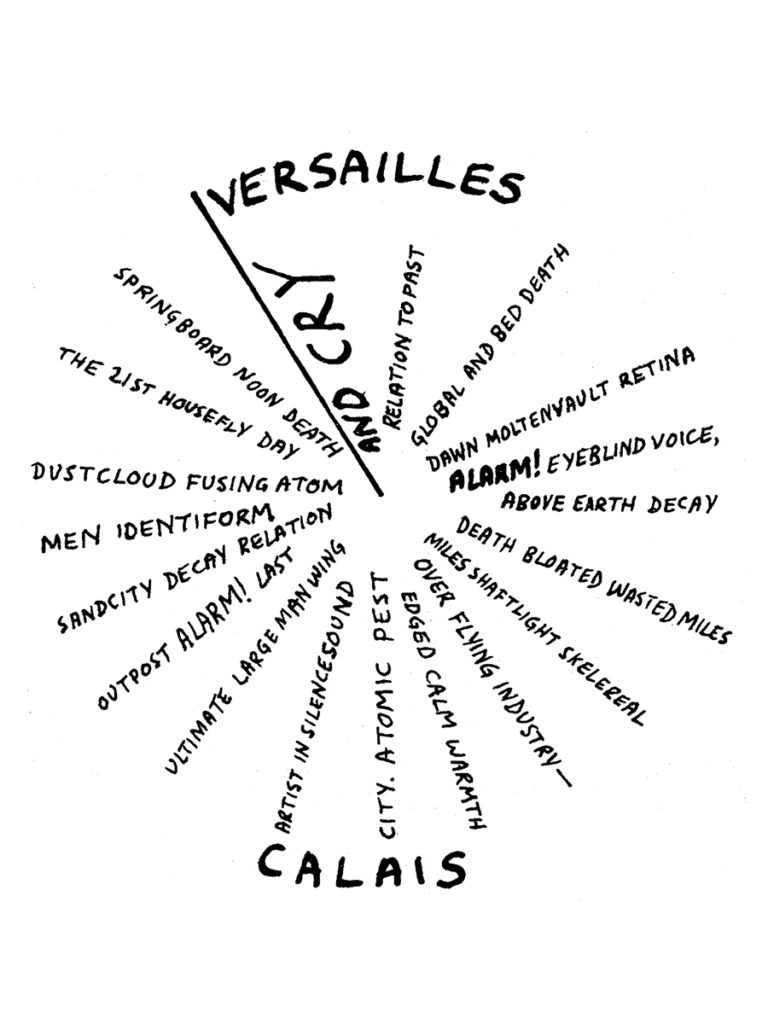 VERSAILLES
AND CRY
RELATION TO PAST
GLOBAL AND BED DEATH
DAWN MOLTENVAULT RETINA
ALARM! EYEBLIND VOICE,
ABOVE EARTH DECAY
DEATH BLOATED WASTED MILES
MILES SHAFTLIGHT SKELEREAL
OVER FLYING INDUSTRY—
EDGED CALM WARMTH
CITY. ATOMIC PEST
ARTIST IN SILENCESOUND
ULTIMATE LARGE MAN WING
OUTPOST ALARM! LAST
SANDCITY DECAY RELATION
MEN IDENTIFORM
DUSTCLOUD FUSING ATOM
THE 21ST HOUSEFLY DAY
SPRINGBOARD NOON DEATH
CALAIS